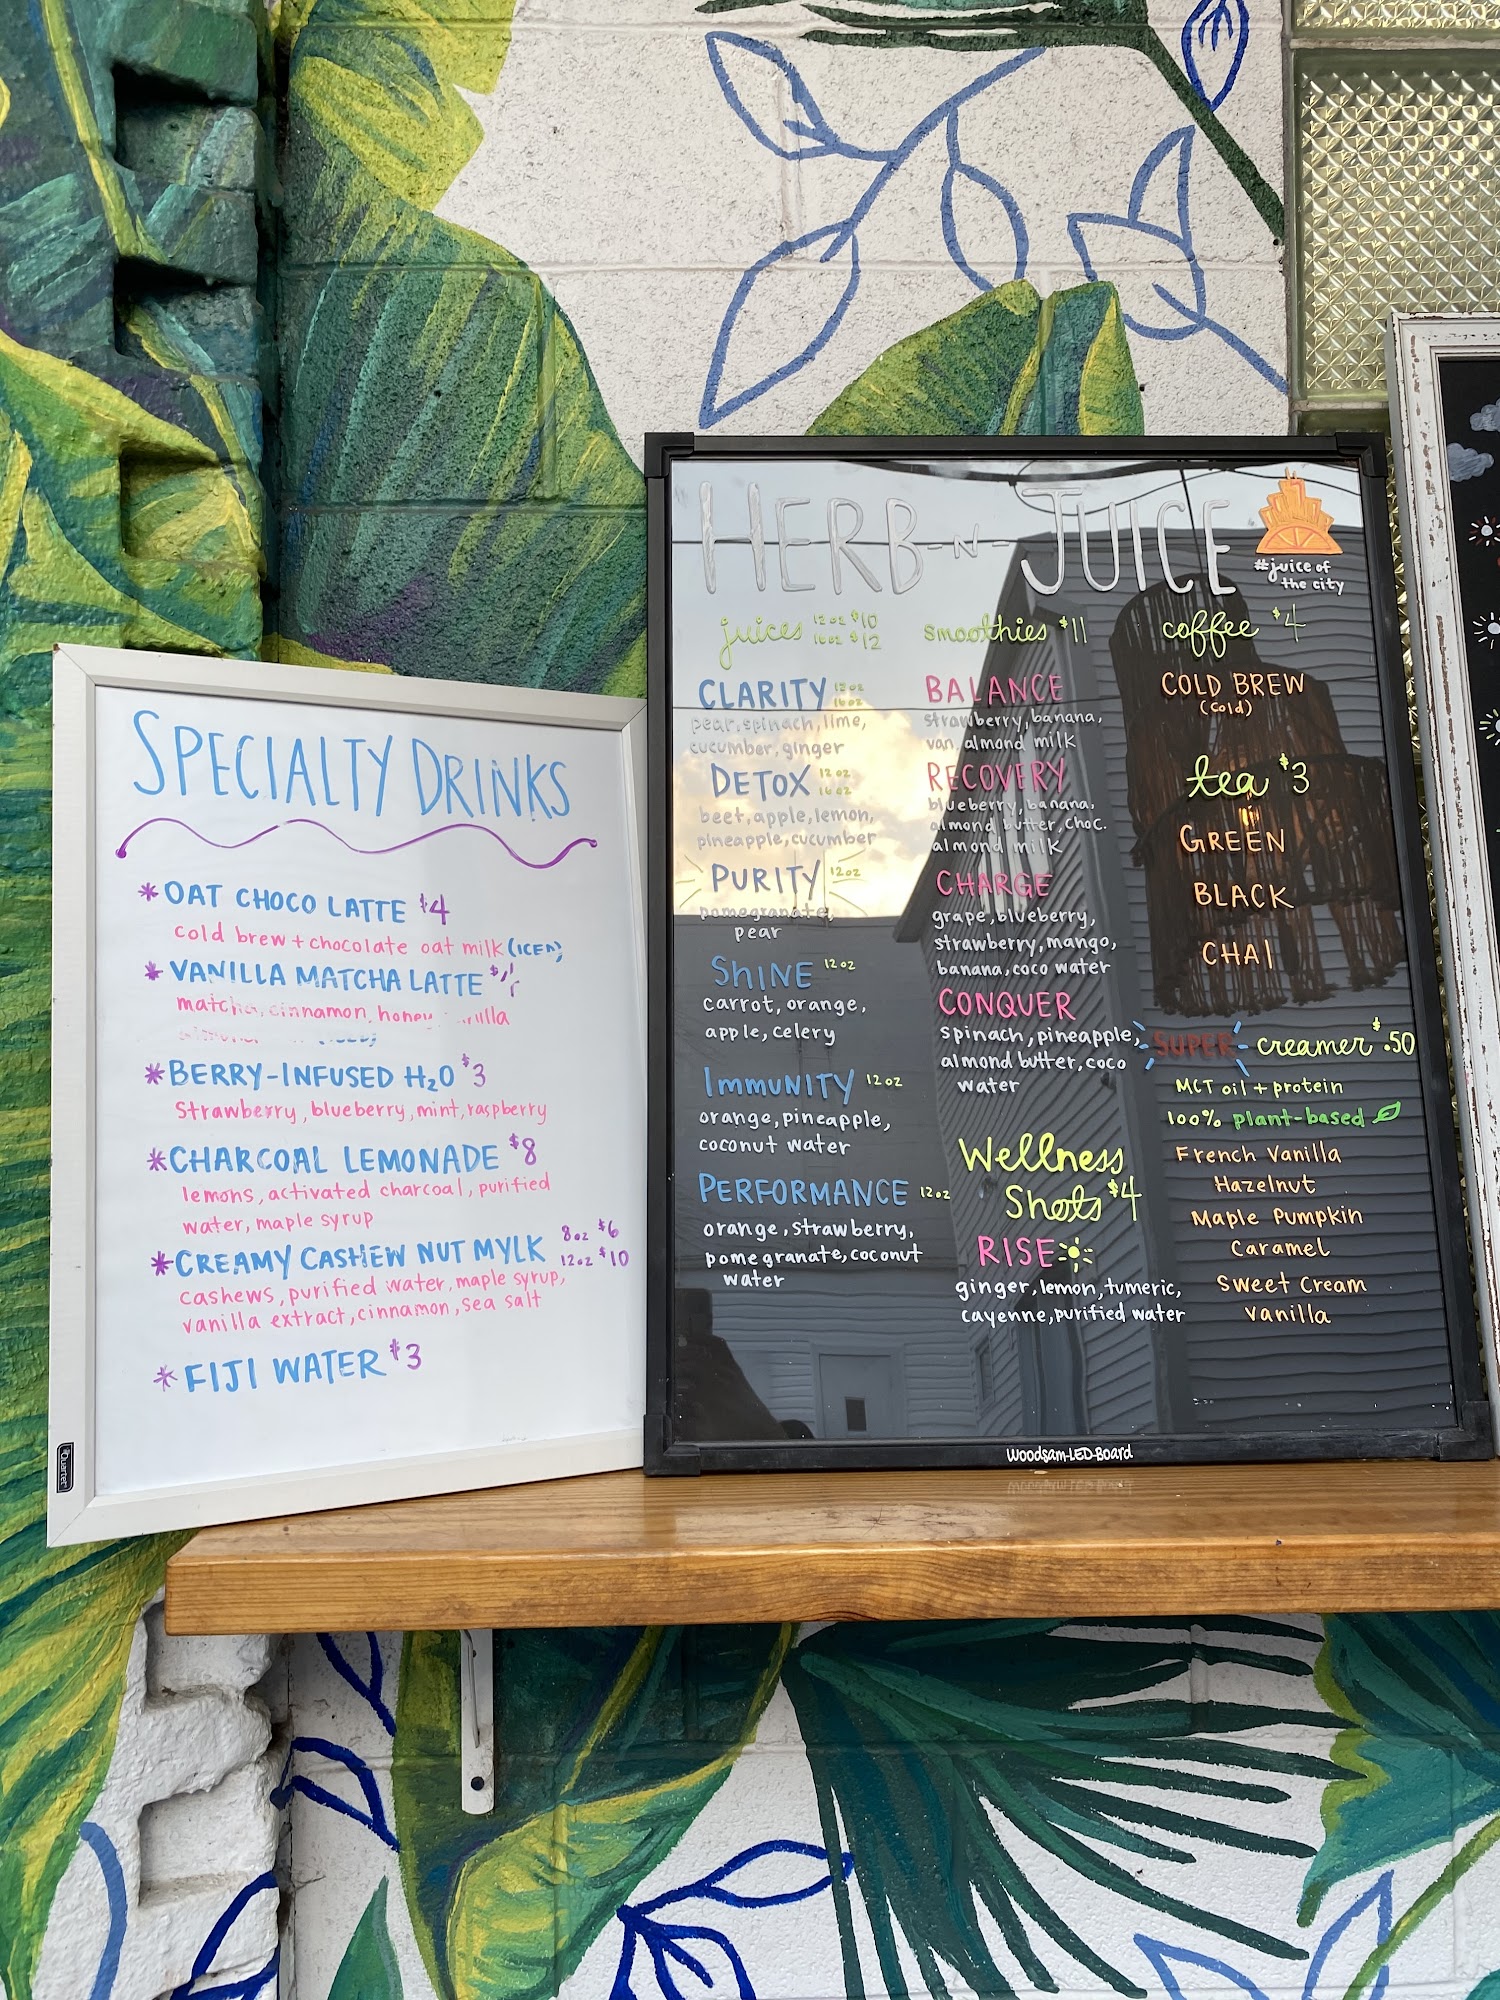 SPECIALTY DRINKS
*OAT CHOCO LATTE $4
cold brew + chocolate oat milk (ICED)
*VANILLA MATCHA LATTE
matcha, cinnamon, honey
*BERRY-INFUSED H₂O $3
Strawberry, blueberry, mint, raspberry
*CHARCOAL LEMONADE $8
lemons, activated charcoal, purified
water, maple syrup
*CREAMY CASHEW NUT MYLK 8oz $6
12oz $10
cashews, purified water, maple syrup,
vanilla extract, cinnamon, sea salt
*FIJI WATER $3
Quartet
HERB-N-JUICE
#juice of
the city
juices 12oz $10
16oz $12
CLARITY 12oz
16oz
pear, spinach, lime,
cucumber, ginger
DETOX 12oz
16oz
beet, apple, lemon,
pineapple, cucumber
PURITY 12oz
pomegranate,
pear
SHINE 12oz
carrot, orange,
apple, celery
IMMUNITY 12oz
orange, pineapple,
coconut water
PERFORMANCE 12oz
orange, strawberry,
pomegranate, coconut
water
smoothies $11
BALANCE
strawberry, banana,
van. almond milk
RECOVERY
blueberry, banana,
almond butter, choc.
almond milk
CHARGE
grape, blueberry,
strawberry, mango,
banana, coco water
CONQUER
spinach, pineapple,
almond butter, coco
water
Wellness
Shots $4
RISE
ginger, lemon, tumeric,
cayenne, purified water
coffee $4
COLD BREW
(cold)
tea $3
GREEN
BLACK
CHAI
SUPER creamer $.50
MCT oil + protein
100% plant-based
French Vanilla
Hazelnut
Maple Pumpkin
Caramel
Sweet Cream
Vanilla
Woodsam-LED-Board